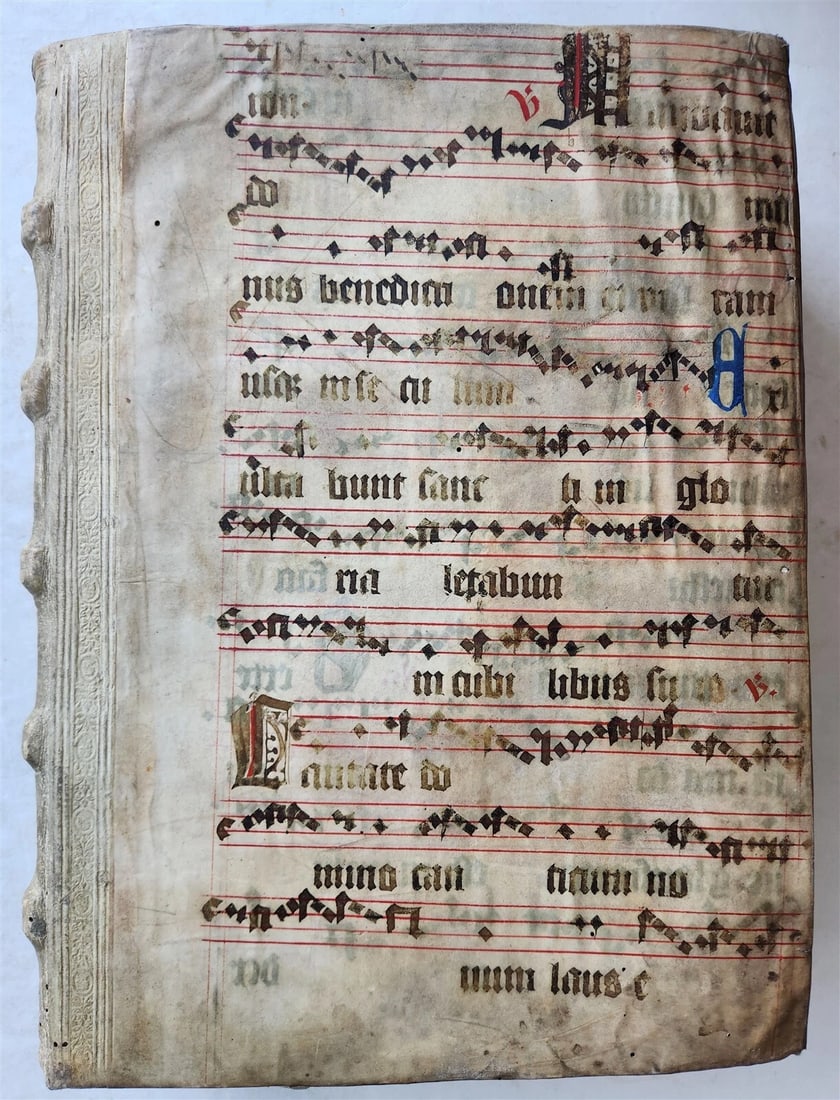 ion V
do mi
nus benedicti onem et vi tam
usq in se cu lum E x
ulta bunt sanc ti in glo
ria letabun tur
in cubi libus suis V.
Cantate do
mino can ticum no
uum laus e